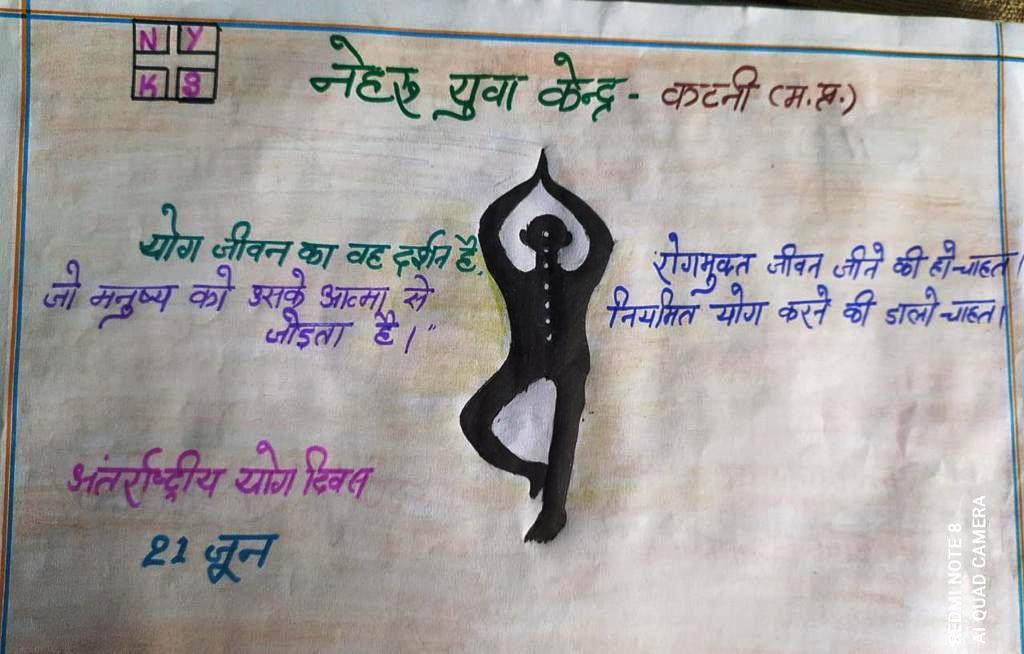 N Y
K S
नेहरू युवा केन्द्र - कटनी (म.प्र.)
योग जीवन का वह दर्शन है,
जो मनुष्य को उसके आत्मा से
जोड़ता है।"
रोगमुक्त जीवन जीने की हो चाहत।
नियमित योग करने की डालो चाहत।
अंतर्राष्ट्रीय योग दिवस
21 जून
REDMI NOTE 8
AI QUAD CAMERA